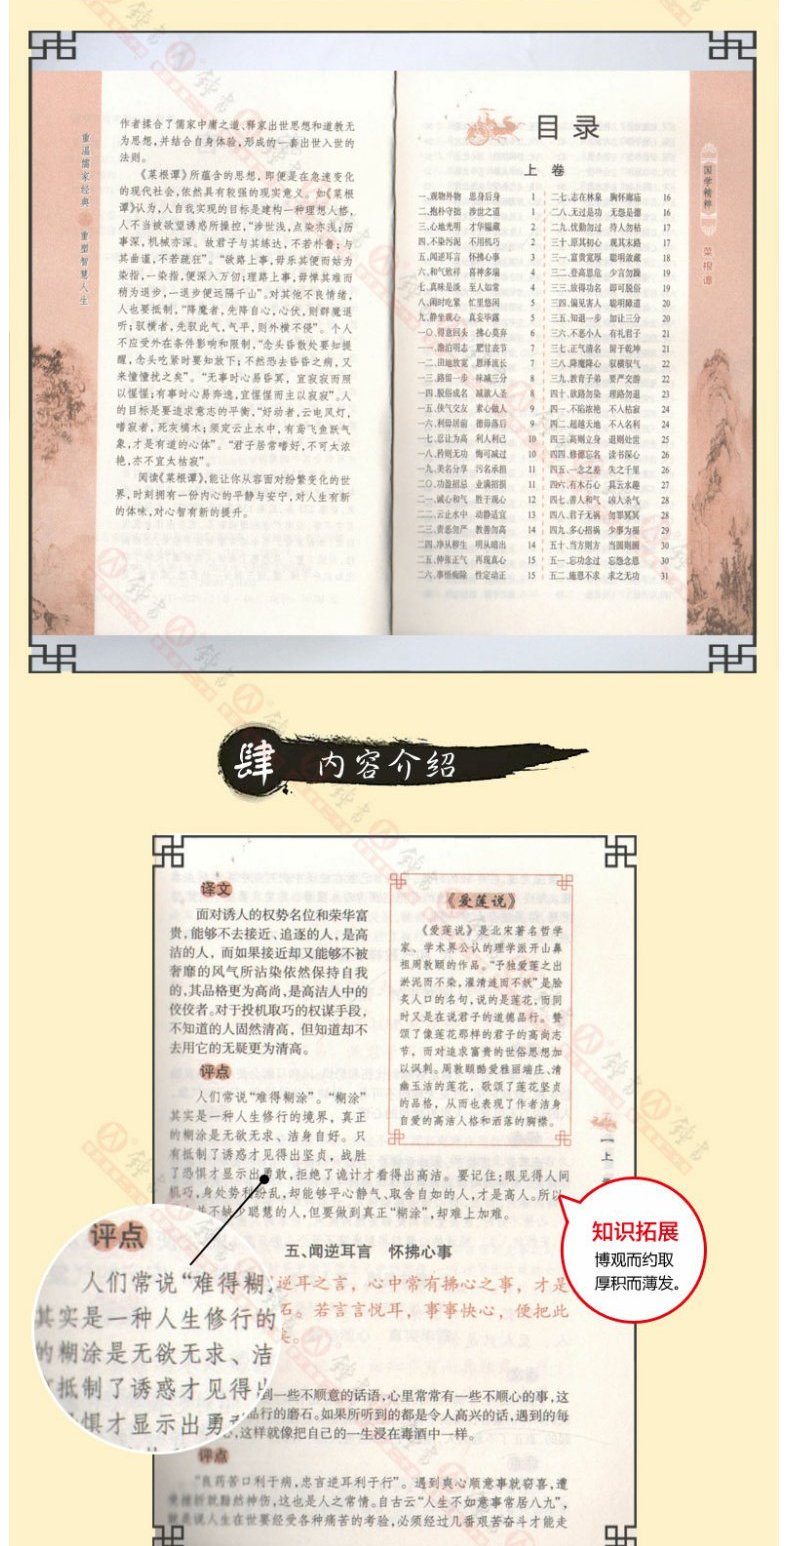 重温儒家经典
重塑智慧人生
作者揉合了儒家中庸之道、释家出世思想和道教无
为思想,并结合自身体验,形成的一套出世入世的
法则。
《菜根谭》所蕴含的思想,即便是在急速变化
的现代社会,依然具有较强的现实意义。如《菜根
谭》认为,人自我实现的目标是建构一种理想人格,
人不当被欲望诱惑所操控,“涉世浅,点染亦浅;历
事深,机械亦深。故君子与其练达,不若朴鲁;与
其曲谨,不若疏狂”。“欲路上事,毋乐其便而姑为
染指,一染指,便深入万仞;理路上事,毋惮其难而
稍为退步,一退步便远隔千山”。对其他不良情绪,
人也要抵制,“降魔者,先降自心,心伏,则群魔退
听;驭横者,先驭此气,气平,则外横不侵”。个人
不应受外在条件影响和限制,“念头昏散处要知提
醒,念头吃紧时要知放下;不然恐去昏昏之病,又
来憧憧扰之矣”。“无事时心易昏冥,宜寂寂而照
以惺惺;有事时心易奔逸,宜惺惺而主以寂寂”。人
的目标是要追求意志的平衡,“好动者,云电风灯,
嗜寂者,死灰槁木;须定云止水中,有鸢飞鱼跃气
象,才是有道的心体”。“君子居常嗜好,不可太浓
艳,亦不宜太枯寂”。
阅读《菜根谭》,能让你从容面对纷繁变化的世
界,时刻拥有一份内心的平静与安宁,对人生有新
的体味,对心智有新的提升。
目录
上 卷
一、观物外物 思身后身 1
二、抱朴守拙 涉世之道 1
三、心地光明 才华韫藏 2
四、不染污泥 不用机巧 2
五、闻逆耳言 怀拂心事 3
六、和气致祥 喜神多瑞 4
七、真味是淡 至人如常 4
八、闲时吃紧 忙里悠闲 5
九、静坐观心 真妄毕露 5
一〇、得意回头 拂心莫弃 6
一一、澹泊明志 肥甘丧节 7
一二、田地放宽 恩泽流长 7
一三、路留一步 味减三分 7
一四、脱俗成名 减欲入圣 8
一五、侠气交友 素心做人 9
一六、利毋居前 德毋落后 9
一七、忍让为高 利人利己 10
一八、矜则无功 悔可减过 10
一九、美名分享 污名承担 11
二〇、功盈招忌 业满招损 11
二一、诚心和气 胜于观心 12
二二、云止水中 动静适宜 13
二三、责恶勿严 教善勿高 14
二四、净从秽生 明从暗出 14
二五、伸张正气 再现真心 15
二六、事悟痴除 性定动正 15
二七、志在林泉 胸怀廊庙 16
二八、无过是功 无怨是德 16
二九、忧勤勿过 待人勿枯 17
三十、原其初心 观其末路 17
三一、富贵宽厚 聪明敛藏 18
三二、登高思危 少言勿躁 19
三三、放得功名 即可脱俗 19
三四、偏见害人 聪明障道 20
三五、知退一步 加让三分 20
三六、不恶小人 有礼君子 21
三七、正气清名 留于乾坤 21
三八、降魔降心 驭横驭气 22
三九、教育子弟 要严交游 22
四十、欲路勿染 理路勿退 23
四一、不陷浓艳 不人枯寂 24
四二、超越天地 不入名利 24
四三、高则立身 退则处世 25
四四、修德忘名 读书深心 26
四五、一念之差 失之千里 26
四六、有木石心 具云水趣 27
四七、善人和气 凶人杀气 28
四八、君子无祸 勿罪冥冥 28
四九、多心招祸 少事为福 29
五十、当方则方 当圆则圆 30
五一、忘功念过 忘怨念恩 30
五二、施恩不求 求之无功 31
国学精粹
菜根谭
肆 内容介绍
译文
面对诱人的权势名位和荣华富
贵,能够不去接近、追逐的人,是高
洁的人,而如果接近却又能够不被
奢靡的风气所沾染依然保持自我
的,其品格更为高尚,是高洁人中的
佼佼者。对于投机取巧的权谋手段,
不知道的人固然清高,但知道却不
去用它的无疑更为清高。
《爱莲说》
《爱莲说》是北宋著名哲学
家、学术界公认的理学派开山鼻
祖周敦颐的作品。“予独爱莲之出
淤泥而不染,濯清涟而不妖”是脍
炙人口的名句,说的是莲花,而同
时又是在说君子的道德品行。赞
颂了像莲花那样的君子的高尚志
节,而对追求富贵的世俗思想加
以讽刺。周敦颐酷爱雅丽端庄、清
幽玉洁的莲花,歌颂了莲花坚贞
的品格,从而也表现了作者洁身
自爱的高洁人格和洒落的胸襟。
上
评点
人们常说“难得糊涂”。“糊涂”
其实是一种人生修行的境界,真正
的糊涂是无欲无求、洁身自好。只
有抵制了诱惑才见得出坚贞,战胜
了恐惧才显示出勇敢,拒绝了诡计才看得出高洁。要记住:眼见得人间
机巧,身处势利纷乱,却能够平心静气、取舍自如的人,才是高人。所以
并不缺少聪慧的人,但要做到真正“糊涂”,却难上加难。
知识拓展
博观而约取
厚积而薄发。
评点
人们常说“难得糊
其实是一种人生修行的
的糊涂是无欲无求、洁
抵制了诱惑才见得出
惧才显示出勇
五、闻逆耳言 怀拂心事
逆耳之言,心中常有拂心之事,才是
石。若言言悦耳,事事快心,便把此
矣。
到一些不顺意的话语,心里常常有一些不顺心的事,这
品行的磨石。如果所听到的都是令人高兴的话,遇到的每
心,这样就像把自己的一生浸在毒酒中一样。
评点
“良药苦口利于病,忠言逆耳利于行”。遇到爽心顺意事就窃喜,遭
受挫折就黯然神伤,这也是人之常情。自古云“人生不如意事常居八九”,
就是说人生在世要经受各种痛苦的考验,必须经过几番艰苦奋斗才能走